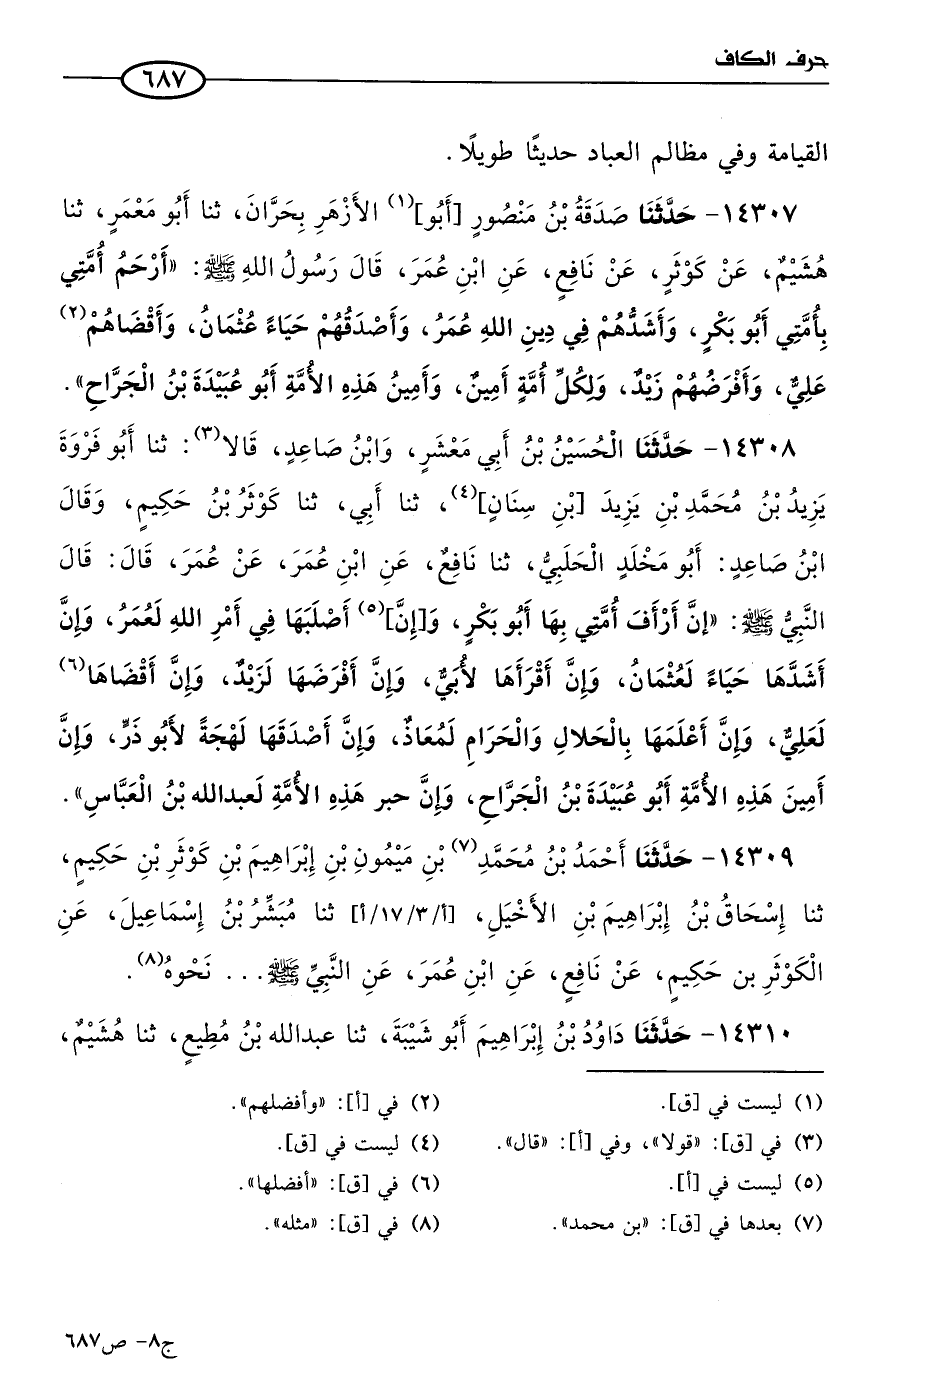 حرف الكاف
٦٨٧
القيامة وفي مظالم العباد حديثًا طويلًا.
١٤٣٠٧- حَدَّثَنَا صَدَقَةُ بْنُ مَنْصُورٍ [أَبُو](١) الأَزْهَرِ بِحَرَّانَ، ثنا أَبُو مَعْمَرٍ، ثنا
هُشَيْمٌ، عَنْ كَوْثَرٍ، عَنْ نَافِعٍ، عَنِ ابْنِ عُمَرَ، قَالَ رَسُولُ اللهِ ﷺ: «أَرْحَمُ أُمَّتِي
بِأُمَّتِي أَبُو بَكْرٍ، وَأَشَدُّهُمْ فِي دِينِ اللهِ عُمَرُ، وَأَصْدَقُهُمْ حَيَاءً عُثْمَانُ، وَأَقْضَاهُمْ(٢)
عَلِيٌّ، وَأَفْرَضُهُمْ زَيْدٌ، وَلِكُلِّ أُمَّةٍ أَمِينٌ، وَأَمِينُ هَذِهِ الأُمَّةِ أَبُو عُبَيْدَةَ بْنُ الْجَرَّاحِ».
١٤٣٠٨- حَدَّثَنَا الْحُسَيْنُ بْنُ أَبِي مَعْشَرٍ، وَابْنُ صَاعِدٍ، قَالا(٣): ثنا أَبُو فَرْوَةَ
يَزِيدُ بْنُ مُحَمَّدِ بْنِ يَزِيدَ [بْنِ سِنَانٍ](٤)، ثنا أَبِي، ثنا كَوْثَرُ بْنُ حَكِيمٍ، وَقَالَ
ابْنُ صَاعِدٍ: أَبُو مَخْلَدٍ الْحَلَبِيُّ، ثنا نَافِعٌ، عَنِ ابْنِ عُمَرَ، عَنْ عُمَرَ، قَالَ: قَالَ
النَّبِيُّ ﷺ: «إنَّ أَرْأَفَ أُمَّتِي بِهَا أَبُو بَكْرٍ، وَ[إِنَّ](٥) أَصْلَبَهَا فِي أَمْرِ اللهِ لَعُمَرُ، وَإِنَّ
أَشَدَّهَا حَيَاءً لَعُثْمَانُ، وَإِنَّ أَقْرَأَهَا لأُبَيٌّ، وَإِنَّ أَفْرَضَهَا لَزَيْدٌ، وَإِنَّ أَقْضَاهَا(٦)
لَعَلِيٌّ، وَإِنَّ أَعْلَمَهَا بِالْحَلالِ وَالْحَرَامِ لَمُعَاذٌ، وَإِنَّ أَصْدَقَهَا لَهْجَةً لأَبُو ذَرٍّ، وَإِنَّ
أَمِينَ هَذِهِ الأُمَّةِ أَبُو عُبَيْدَةَ بْنُ الْجَرَّاحِ، وَإِنَّ حبر هَذِهِ الأُمَّةِ لَعبدالله بْنُ الْعَبَّاسِ».
١٤٣٠٩- حَدَّثَنَا أَحْمَدُ بْنُ مُحَمَّدِ(٧) بْنِ مَيْمُونِ بْنِ إِبْرَاهِيمَ بْنِ كَوْثَرِ بْنِ حَكِيمٍ،
ثنا إِسْحَاقُ بْنُ إِبْرَاهِيمَ بْنِ الأَخْيَلِ، [أ/١٧/٣/أ] ثنا مُبَشِّرُ بْنُ إِسْمَاعِيلَ، عَنِ
الْكَوْثَرِ بن حَكِيمٍ، عَنْ نَافِعٍ، عَنِ ابْنِ عُمَرَ، عَنِ النَّبِيِّ ﷺ... نَحْوهُ(٨).
١٤٣١٠- حَدَّثَنَا دَاوُدُ بْنُ إِبْرَاهِيمَ أَبُو شَيْبَةَ، ثنا عبدالله بْنُ مُطِيعٍ، ثنا هُشَيْمٌ،
(١) ليست في [ق].
(٢) في [أ]: «وأفضلهم».
(٣) في [ق]: «قولا»، وفي [أ]: «قال».
(٤) ليست في [ق].
(٥) ليست في [أ].
(٦) في [ق]: «أفضلها».
(٧) بعدها في [ق]: «بن محمد».
(٨) في [ق]: «مثله».
ج٨- ص٦٨٧